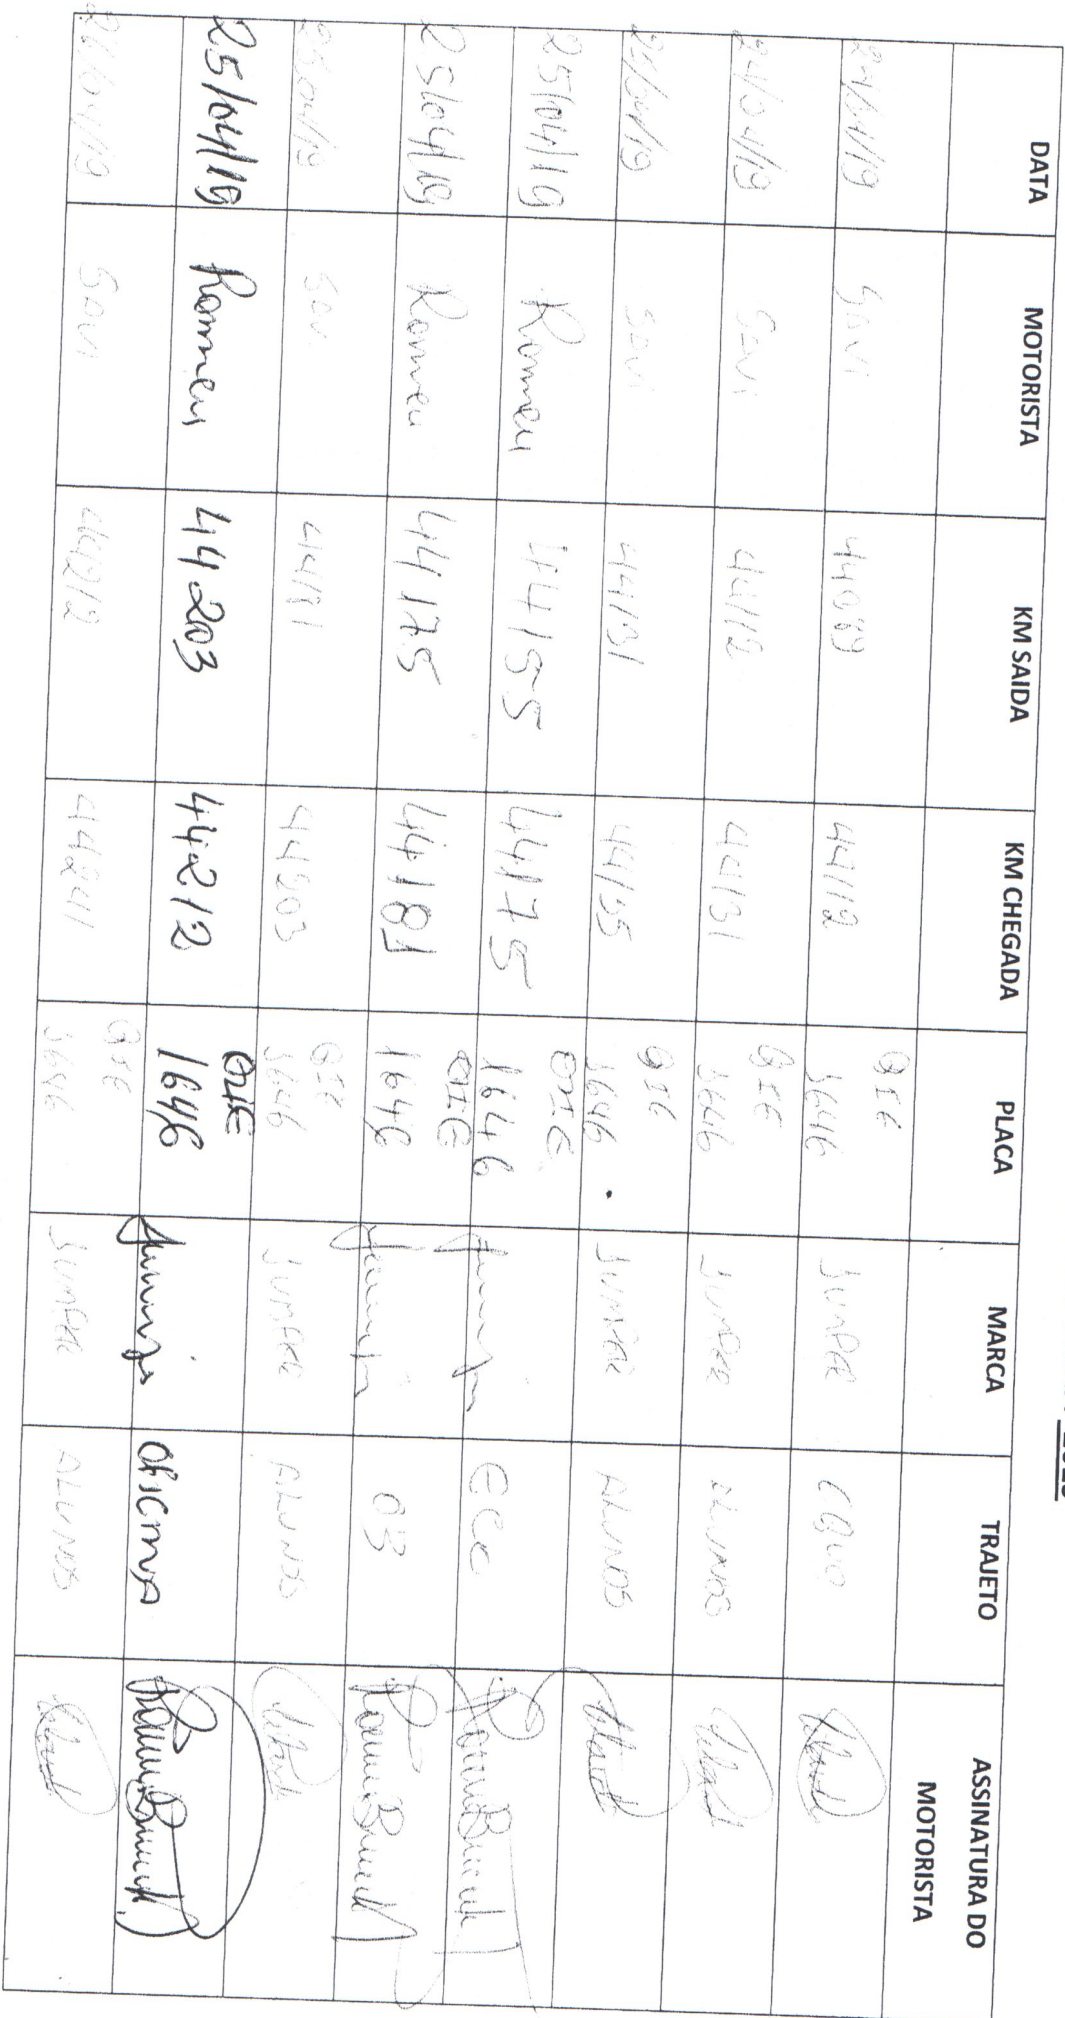 DATA MOTORISTA KM SAIDA KM CHEGADA PLACA MARCA TRAJETO ASSINATURA DO MOTORISTA
24/04/19 SAVI 44089 44112 QIE 1646 JUMPER
24/04/19 SAVI 44112 44131 QIE 1646 JUMPER ALUNOS
24/04/19 SAVI 44131 44155 QIE 1646 JUMPER ALUNOS
25/04/19 Romeu 44155 44175 QIE 1646 ECC
25/04/19 Romeu 44175 44181 QIE 1646 03
25/04/19 SAVI 44181 44203 QIE 1646 JUMPER ALUNOS
25/04/19 Romeu 44203 44212 QIE 1646 oficina
26/04/19 SAVI 44212 44241 QIE 1646 JUMPER ALUNOS